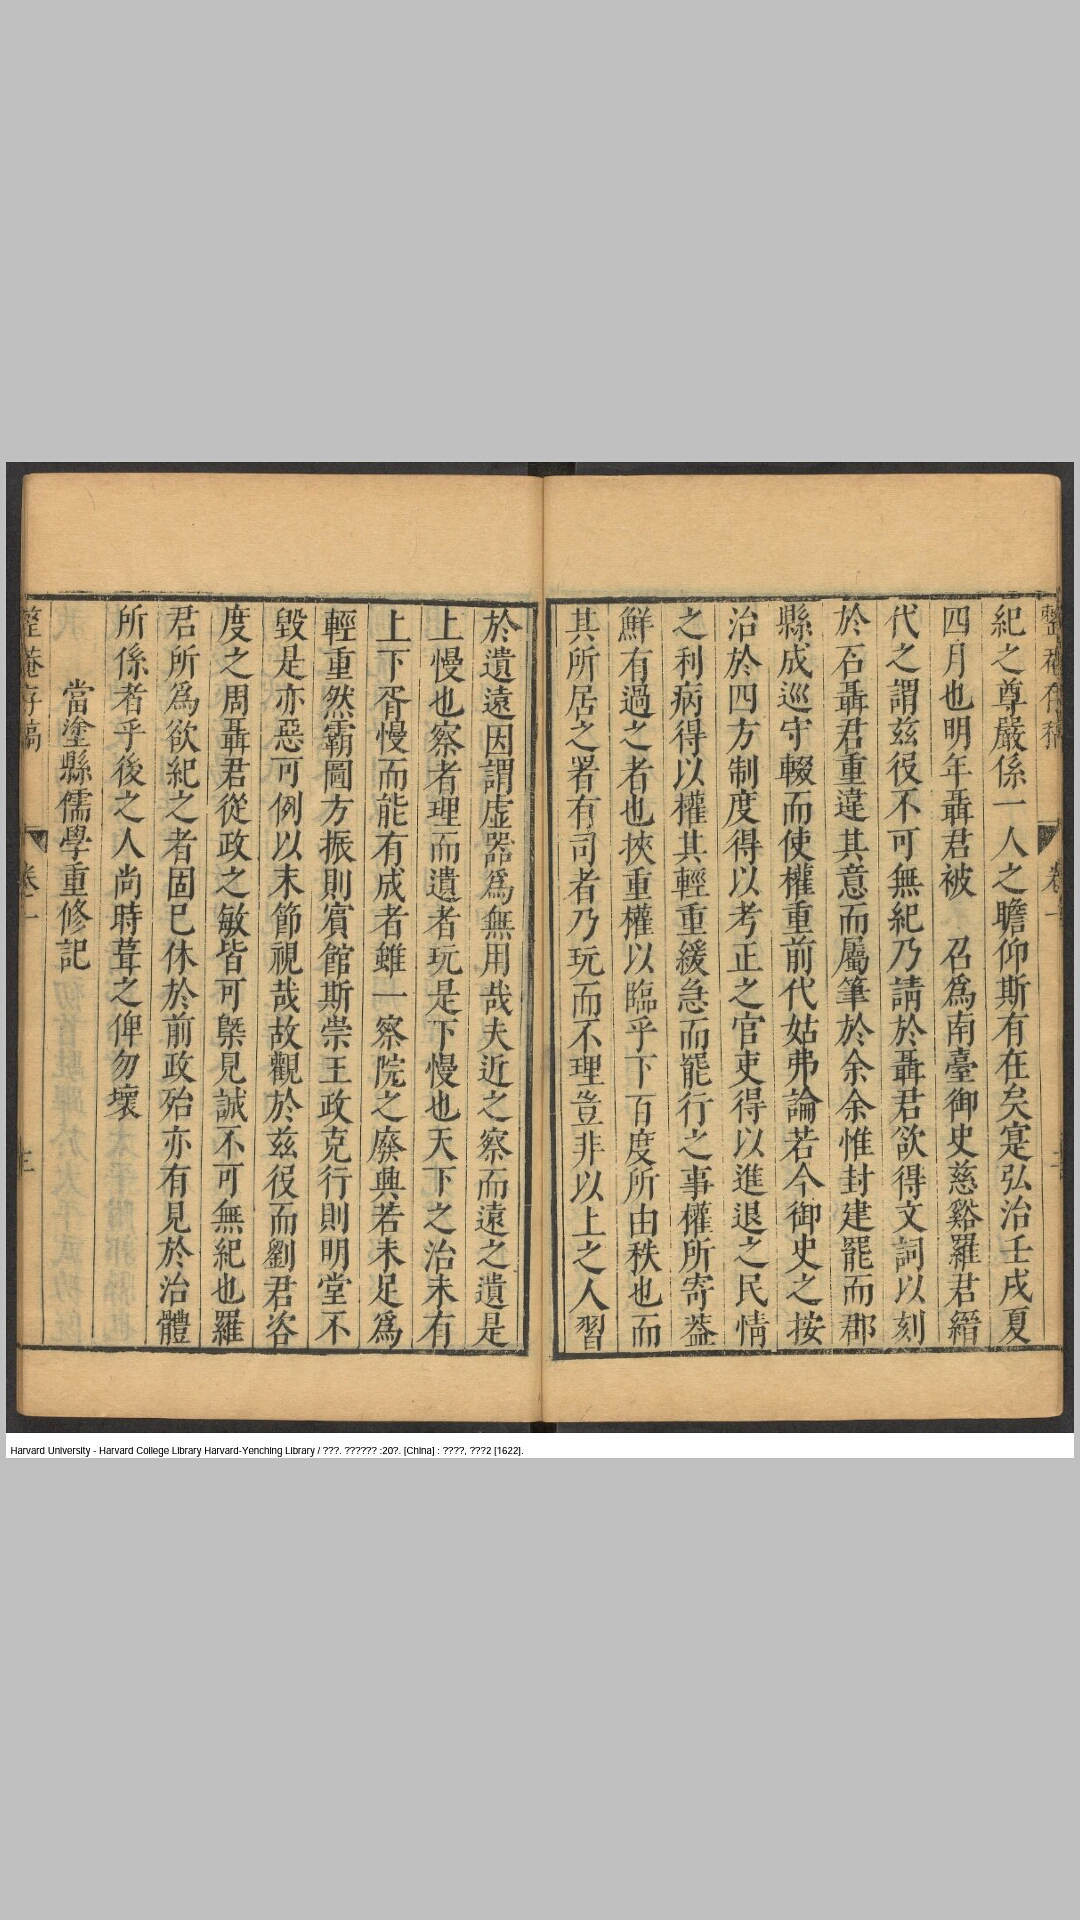 紀之尊嚴係一人之瞻仰斯有在矣寔弘治壬戌夏
四月也明年聶君被　召爲南臺御史慈谿羅君縉
代之謂茲役不可無紀乃請於聶君欲得文詞以刻
於石聶君重違其意而屬筆於余余惟封建罷而郡
縣成巡守輟而使權重前代姑弗論若今御史之按
治於四方制度得以考正之官吏得以進退之民情
之利病得以權其輕重緩急而罷行之事權所寄葢
鮮有過之者也挾重權以臨乎下百度所由秩也而
其所居之署有司者乃玩而不理豈非以上之人習
於遺遠因謂虛器爲無用哉夫近之察而遠之遺是
上慢也察者理而遺者玩是下慢也天下之治未有
上下胥慢而能有成者雖一察院之廢興若未足爲
輕重然霸圖方振則賓館斯崇王政克行則明堂不
毀是亦惡可例以末節視哉故觀於茲役而劉君咨
度之周聶君從政之敏皆可槩見誠不可無紀也羅
君所爲欲紀之者固已休於前政殆亦有見於治體
所係者乎後之人尚時葺之俾勿壞
當塗縣儒學重修記
整菴存稿
卷一
三
Harvard University - Harvard College Library Harvard-Yenching Library / ???. ?????? :20?. [China] : ????, ???2 [1622].